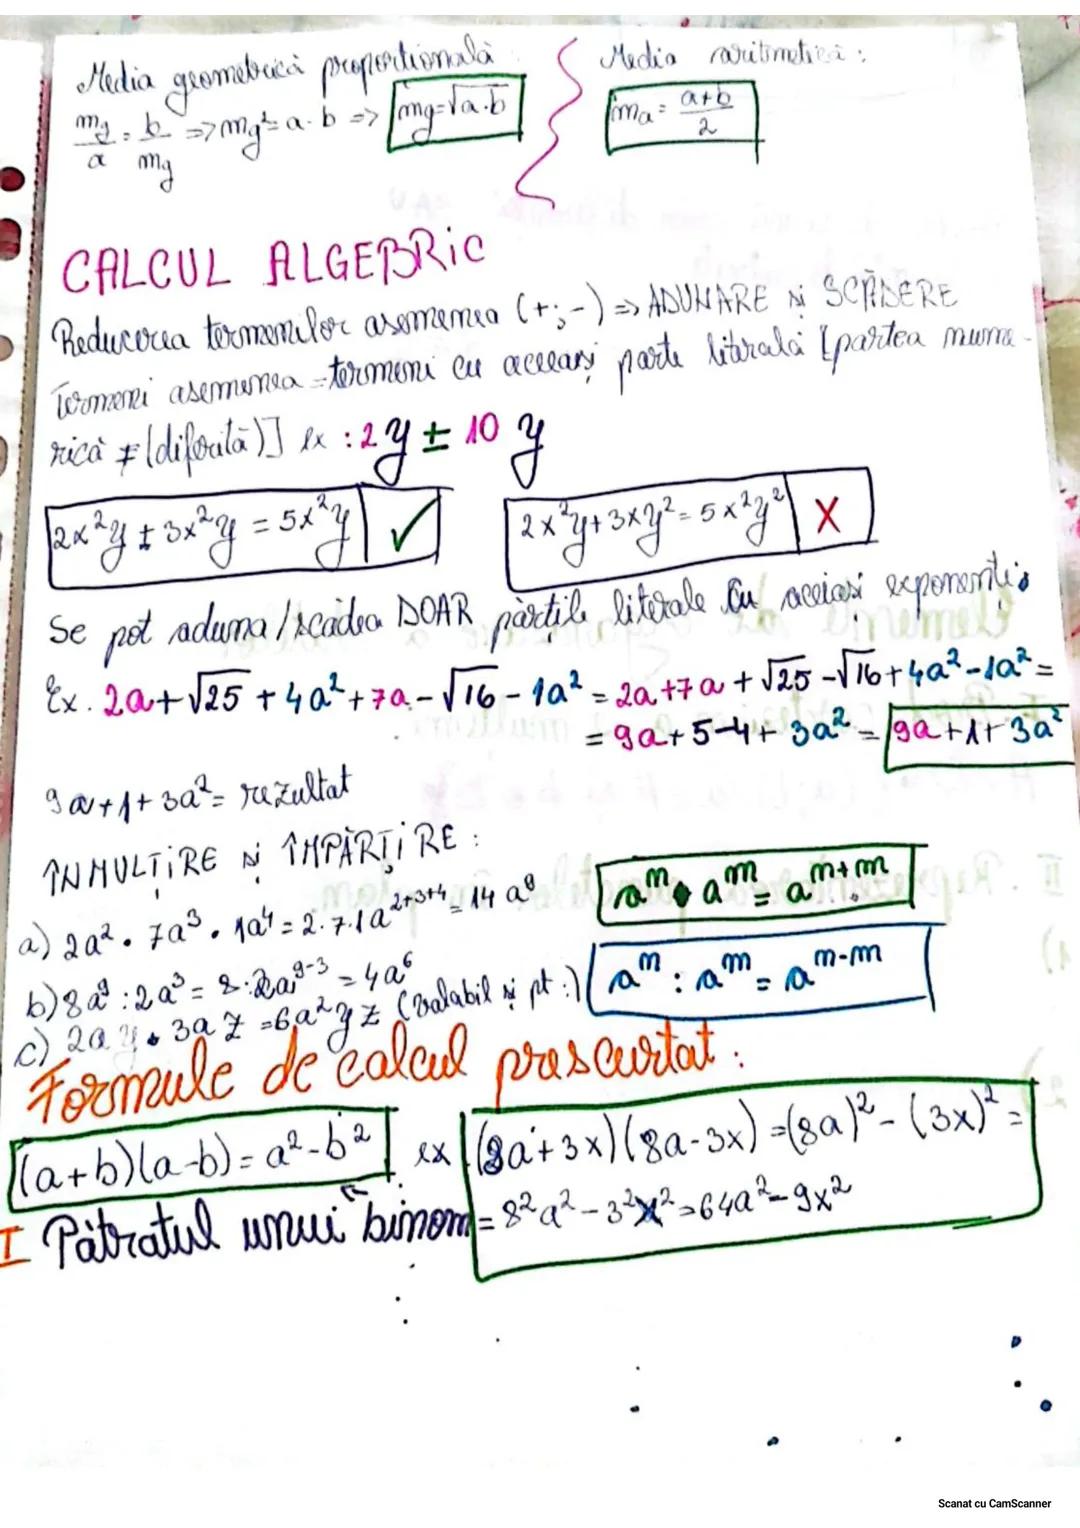 Media geometrică proporțională
Media aritmetică:
mg/a = b/mg => mg² = a·b => mg=√a·b
ma = a+b/2
CALCUL ALGEBRIC
Reducerea termenilor asemenea (+;-) => ADUNARE și SCĂDERE
Termeni asemenea = termeni cu aceeași parte literală [partea nume-
rică ≠ (diferită)] ex: 2y ± 10 y
2x²y ± 3x²y = 5x²y ✓
2x²y+3xy² = 5x²y² X
Se pot aduna/scădea DOAR părțile literale cu aceiași exponenți:
Ex. 2a+√25 + 4a² + 7a - √16 - 1a² = 2a+7a + √25 - √16 + 4a² - 1a² =
= 9a + 5-4 + 3a² = 9a+1+3a²
9a+1+3a² = rezultat
ÎNMULȚIRE și ÎMPĂRȚIRE:
a) 2a² · 7a³ · 1a⁴ = 2·7·1a²⁺³⁺⁴ = 14 a⁹
aᵐ · aⁿ = aᵐ⁺ⁿ
b) 8a⁹ : 2a³ = 8:2a⁹⁻³ = 4a⁶
aᵐ : aⁿ = aᵐ⁻ⁿ
c) 2a y · 3a z = 6a²yz (valabil și pt :)
Formule de calcul prescurtat:
(a+b)(a-b) = a²-b²
ex (8a+3x)(8a-3x) = (8a)² - (3x)² =
= 8²a² - 3²x² = 64a² - 9x²
I Pătratul unui binom
Scanat cu CamScanner